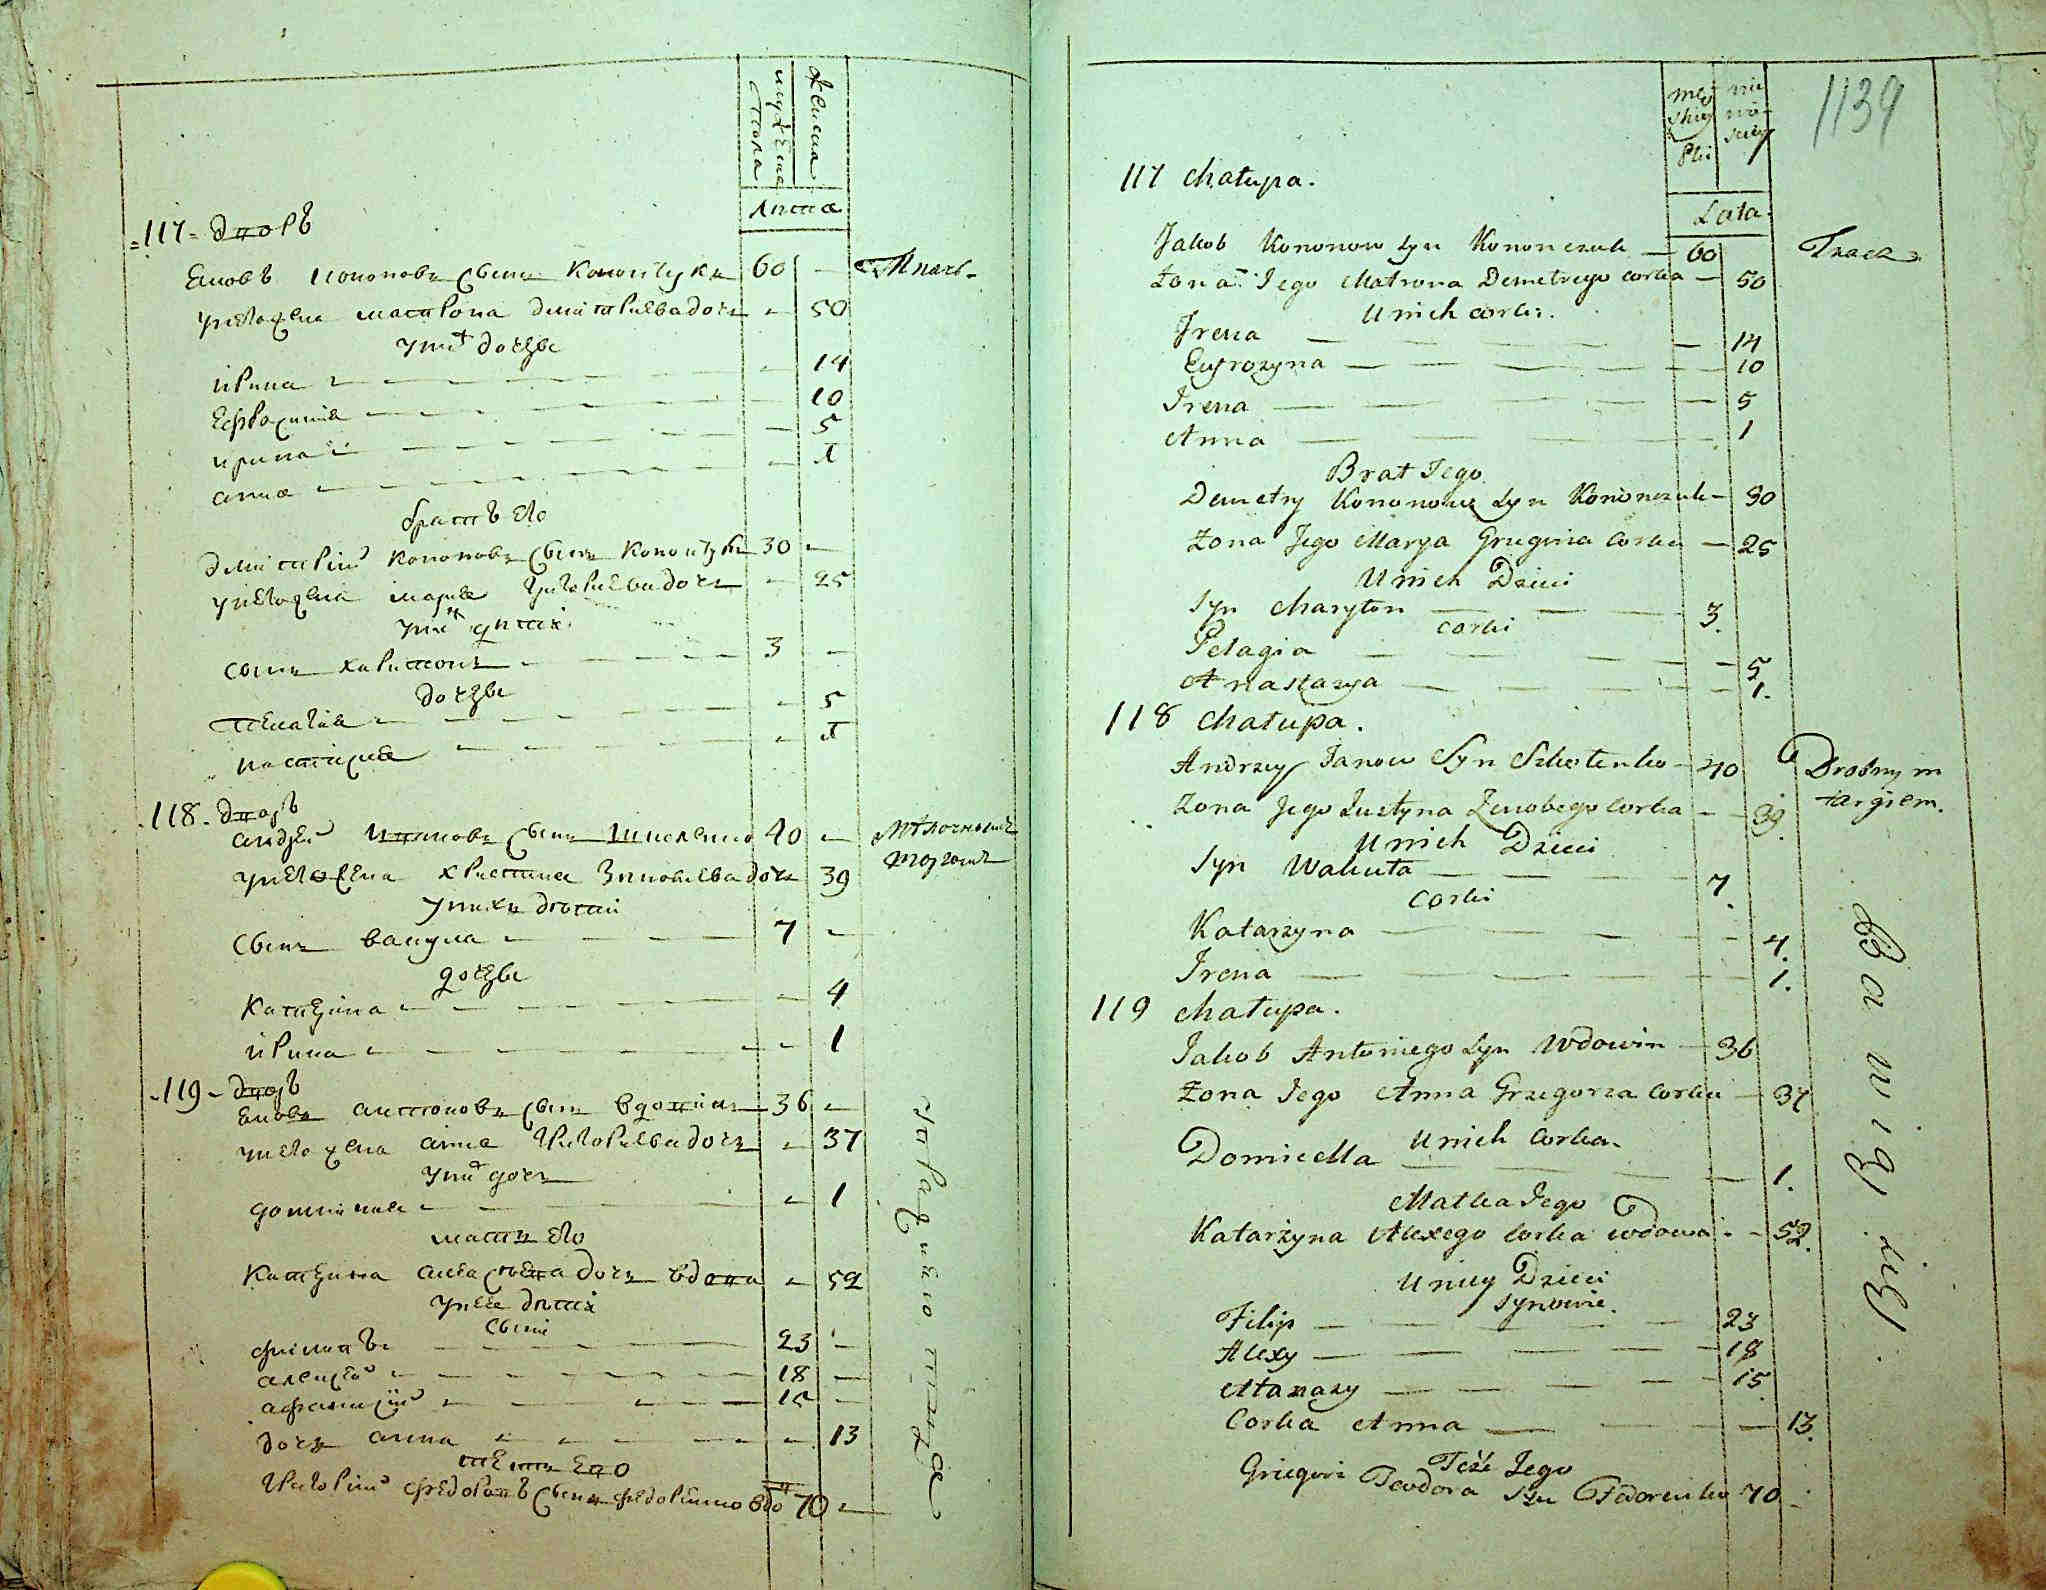 мужеска пола
женска
Лита
117 Дворъ
Яковъ Кононовъ сынъ Конончукъ 60 — Ткачъ
у него жена Матрона Дмитриева дочь — 50
у них дочери
Ирина — 14
Ефросиния — 10
Ирина — 5
Анна — 1
братъ его
Дмитрий Кононовъ сынъ Конончукъ 30 —
у него жена Мария Григориева дочь — 25
у них дети
сынъ Харитонъ 3 —
дочери
Пелагия — 5
Настасия — 1
118 Дворъ
Андрей Ивановъ сынъ 40 — мелочнымъ
торгомъ
у него жена Христина Зиновиева дочь 39
у нихъ дети
сынъ Вакула 7 —
дочери
Катерина — 4
Ирина — 1
119 Дворъ
Яковъ Антоновъ сынъ Вдовинъ 36 —
у него жена Анна Григориева дочь — 37
у них дочь
Домникия — 1
мать его
Катерина Алексеева дочь вдова — 52
у нее дети
сыни
Филипъ 23 —
Алексей 18 —
Афанасий 15 —
дочь Анна — 13
тесть его
Григорий Федоровъ сынъ Федоренко вдов 70 —
1139
męż
skiey
Płci
nie
wie-
sciey
Lata
117 Chałupa.
Jakob Kononow Syn Kononczuk — 60 Tkacz
Żona Jego Matrona Demetrego corka — 50
U nich corki.
Irena — 14
Eufrozyna — 10
Irena — 5
Anna — 1
Brat Jego
Demetry Kononow Syn Kononczuk — 30
Żona Jego Marya Gregoria Corka — 25
U nich Dzieci
Syn Charyton — 3.
Corki
Pelagia — 5
Anastazya — 1.
118 Chałupa.
Andrzey Janow Syn — 40 Drobnym
targiem.
Żona Jego Justyna Zenobego Corka — 39.
U nich Dzieci
Syn Wakuła — 7.
Corki
Katarzyna — 4.
Irena — 1.
119 Chałupa.
Jakob Antoniego Syn Wdowin — 36
Żona Jego Anna Grzegorza Corka — 37
U nich Corka.
Domicella — 1.
Matka Jego
Katarzyna Alexego Corka wdowa — 52.
U niey Dzieci
Synowie.
Filip — 23
Alexy — 18
Atanazy — 15
Corka Anna — 13.
Teść Jego
Grzegorz Teodora Syn Fedorenko 70 —
Bawią się.